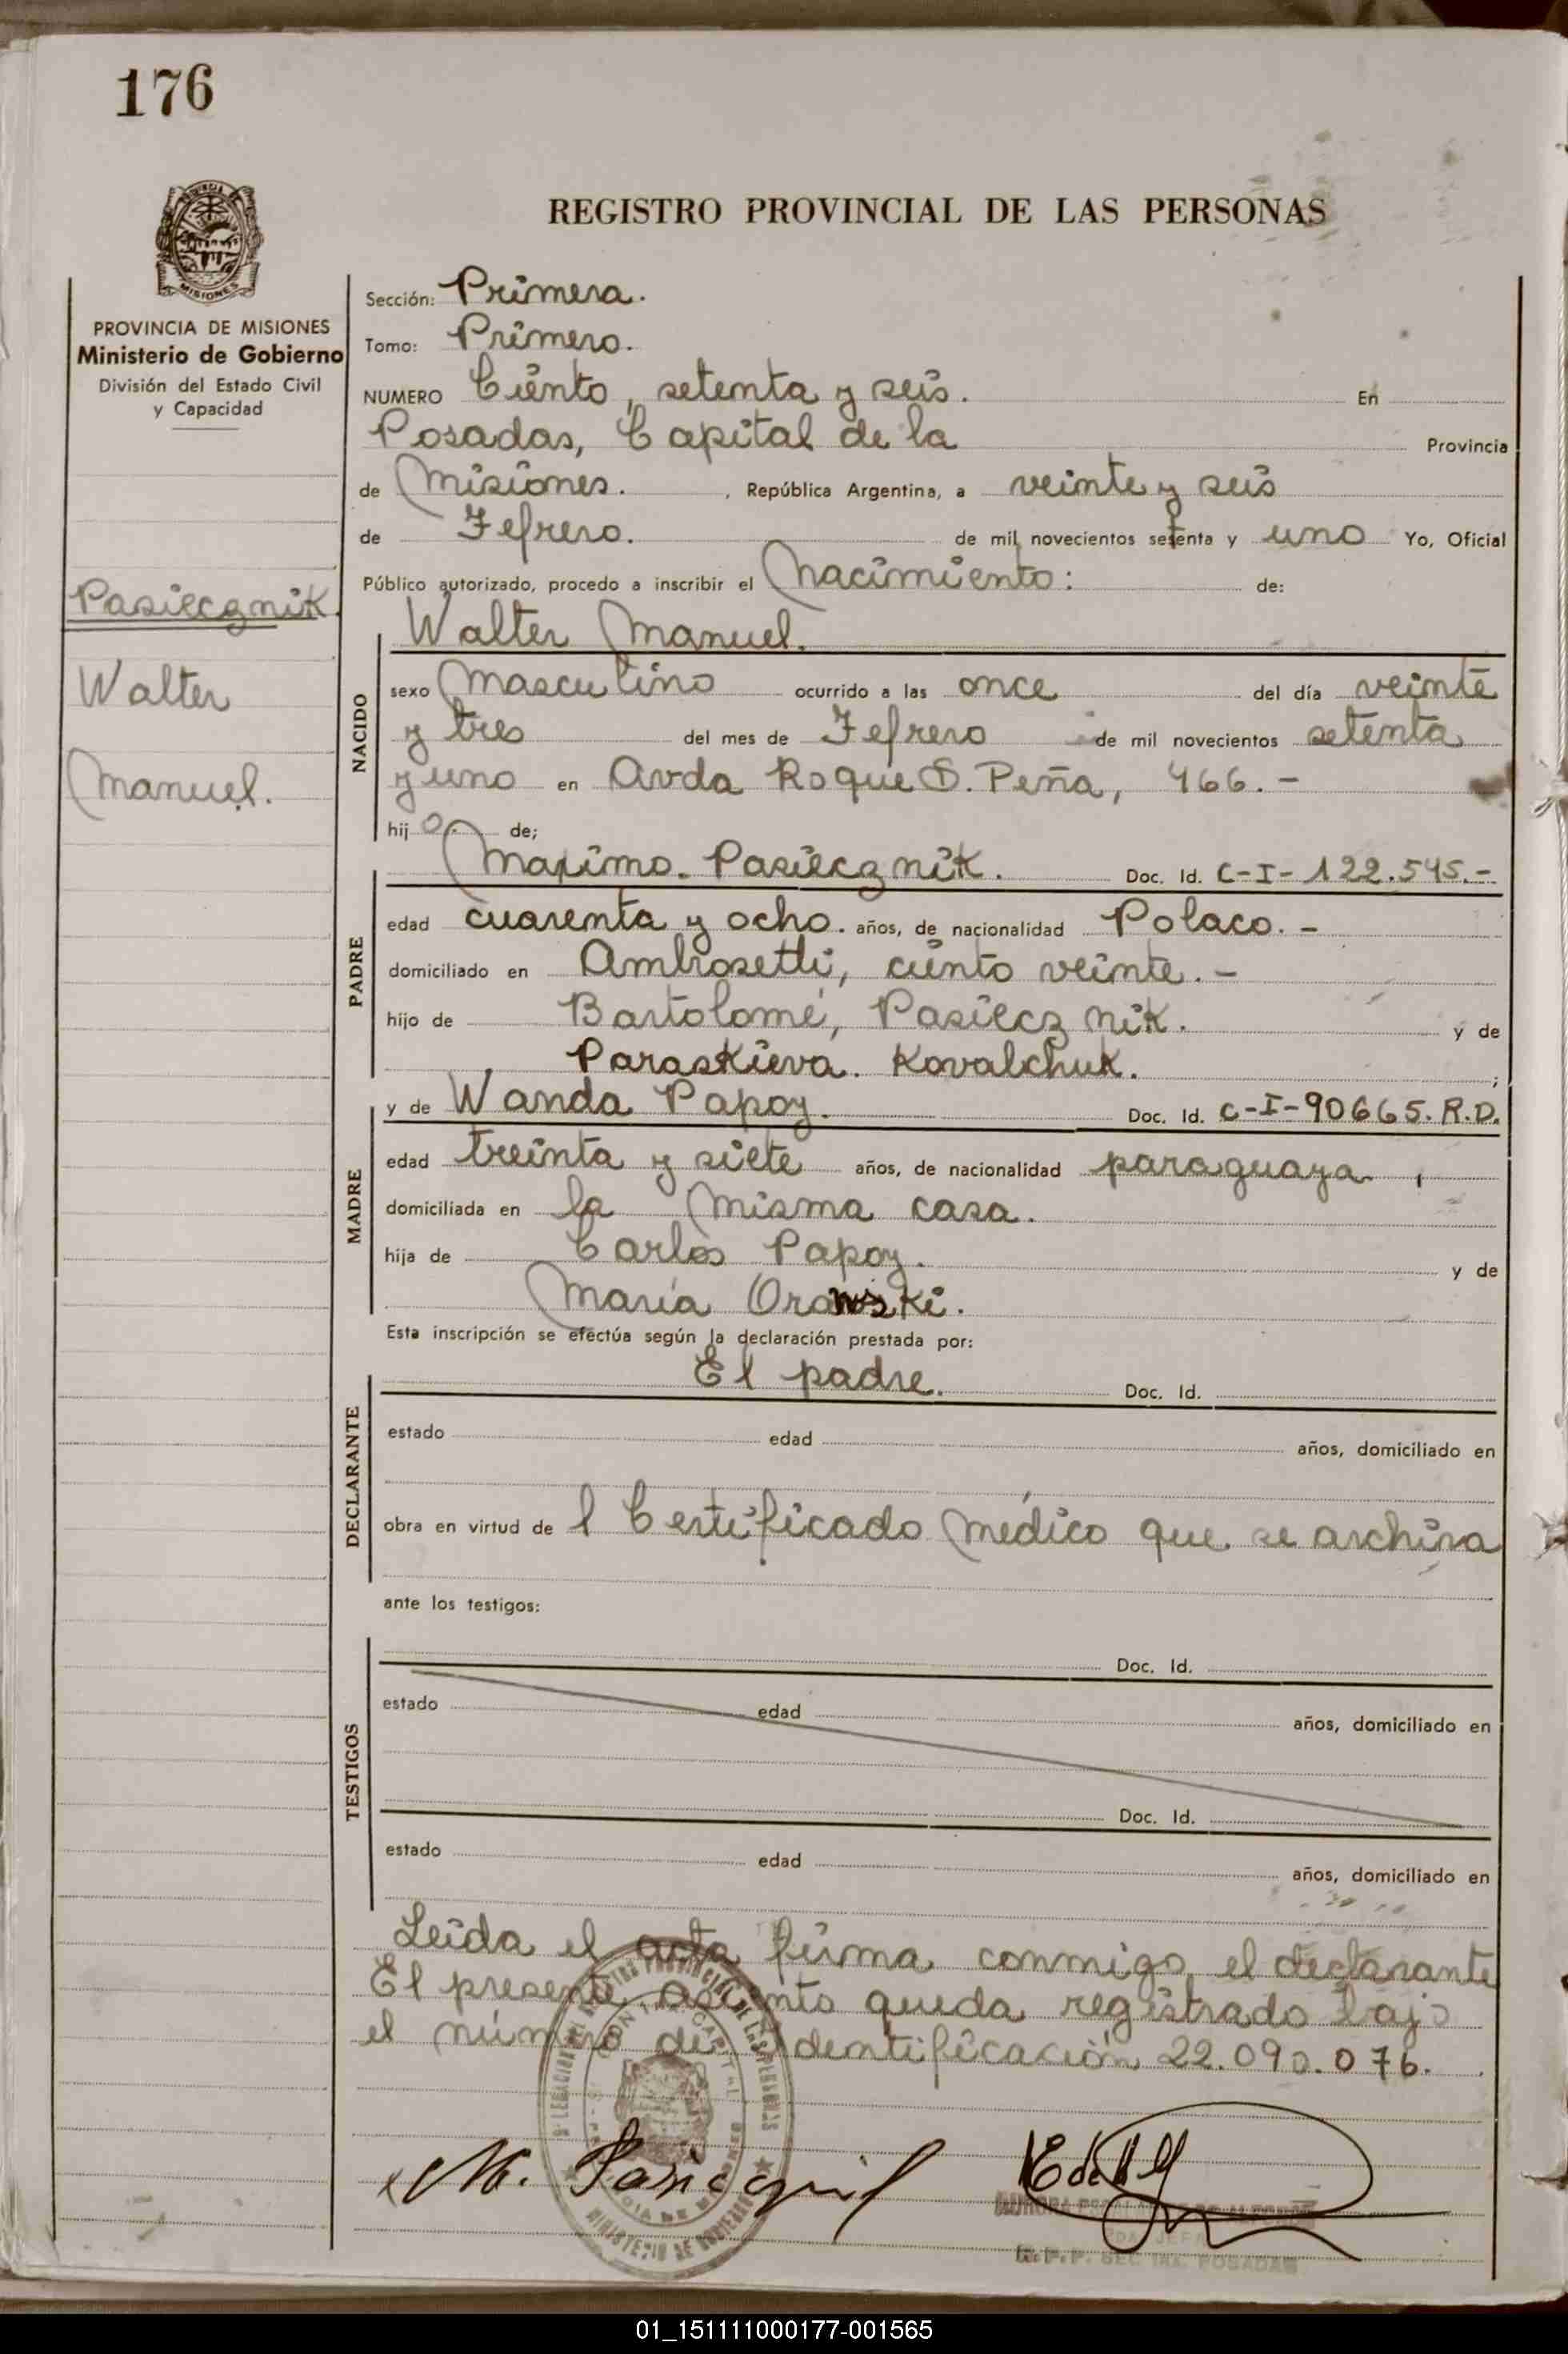 176
REGISTRO PROVINCIAL DE LAS PERSONAS
MISIONES
PROVINCIA DE MISIONES
Ministerio de Gobierno
División del Estado Civil
y Capacidad
Pasiecznik
Walter
Manuel.
Sección: Primera.
Tomo: Primero.
NUMERO Ciento, setenta y seis. En
Posadas, Capital de la Provincia
de Misiones. , República Argentina, a veinte y seis
de Febrero. de mil novecientos setenta y uno Yo, Oficial
Público autorizado, procedo a inscribir el Nacimiento: de:
Walter Manuel.
NACIDO
sexo Masculino ocurrido a las once del día veinte
y tres del mes de Febrero de mil novecientos setenta
y uno en Avda Roque S. Peña, 466.-
hijo. de;
Maximo. Pasiecznik. Doc. Id. C-I-122.545.-
PADRE
edad cuarenta y ocho. años, de nacionalidad Polaco.-
domiciliado en Ambrosetti, ciento veinte.-
hijo de Bartolomé, Pasiecznik. y de
Paraskieva. Kovalchuk. ;
y de Wanda Papoz. Doc. Id. C-I-90665. R.D.
MADRE
edad treinta y siete años, de nacionalidad paraguaya ,
domiciliada en la misma casa.
hija de Carlos Papoz. y de
María Orawski.
Esta inscripción se efectúa según la declaración prestada por:
El padre. Doc. Id.
DECLARANTE
estado edad años, domiciliado en
obra en virtud de l Certificado Médico que se archiva
ante los testigos:
TESTIGOS
Doc. Id.
estado edad años, domiciliado en
Doc. Id.
estado edad años, domiciliado en
Leida el acta firma conmigo el declarante
El presente asiento queda registrado bajo
el número de Identificación 22.090.076.
M.
POSADAS
01_151111000177-001565